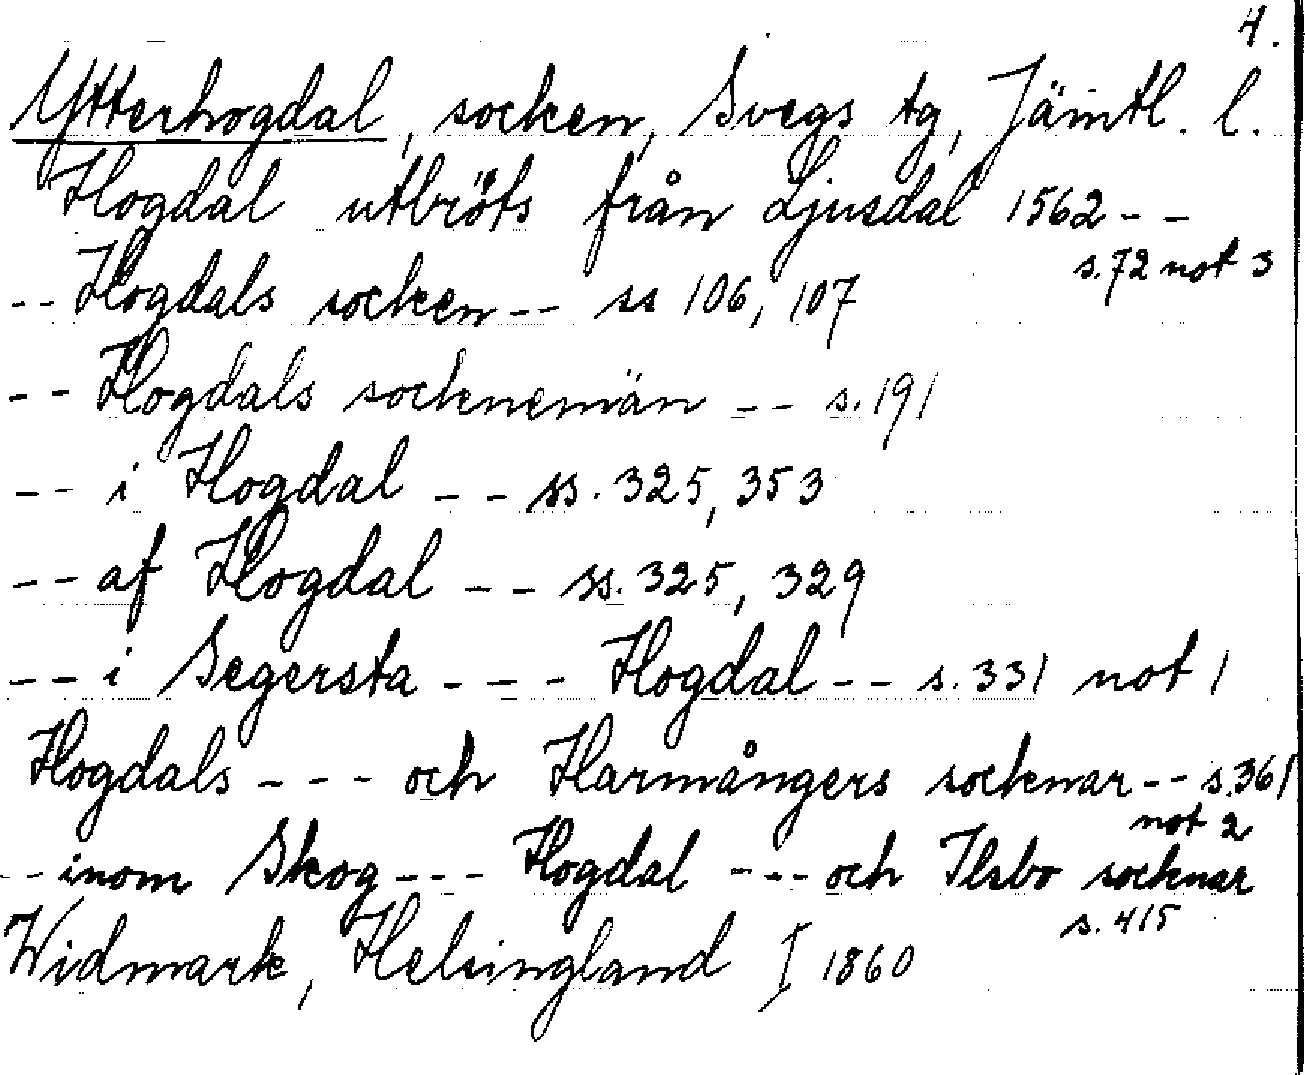 4.
Ytterhogdal, socken, Svegs tg, Jämtl. l.
Hogdal utbröts från Ljusdal 1562 - -
s.72 not 3
- - Hogdals socken - - ss 106, 107
- - Hogdals socknemän - - s.191
- - i Hogdal - - ss. 325, 353
- - af Hogdal - - ss. 325, 329
- - i Segersta - - - Hogdal - - s. 331 not 1
Hogdals - - - och Harmångers socknar - - s.361
not 2
- - inom Skog - - - Hogdal - - - och Ilsbo socknar
s. 415
Widmark, Helsingland I 1860